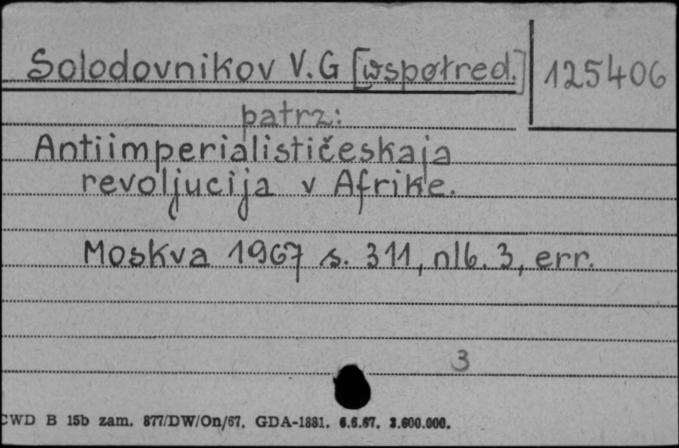 Solodovnikov V.G [współred.] 125406
patrz:
Antiimperialističeskaja
revoljucija v Afrike.
Moskva 1967 s. 311, nlb. 3, err.
3
CWD B 15b zam. 877/DW/On/67. GDA-1881. 6.6.67. 3.600.000.